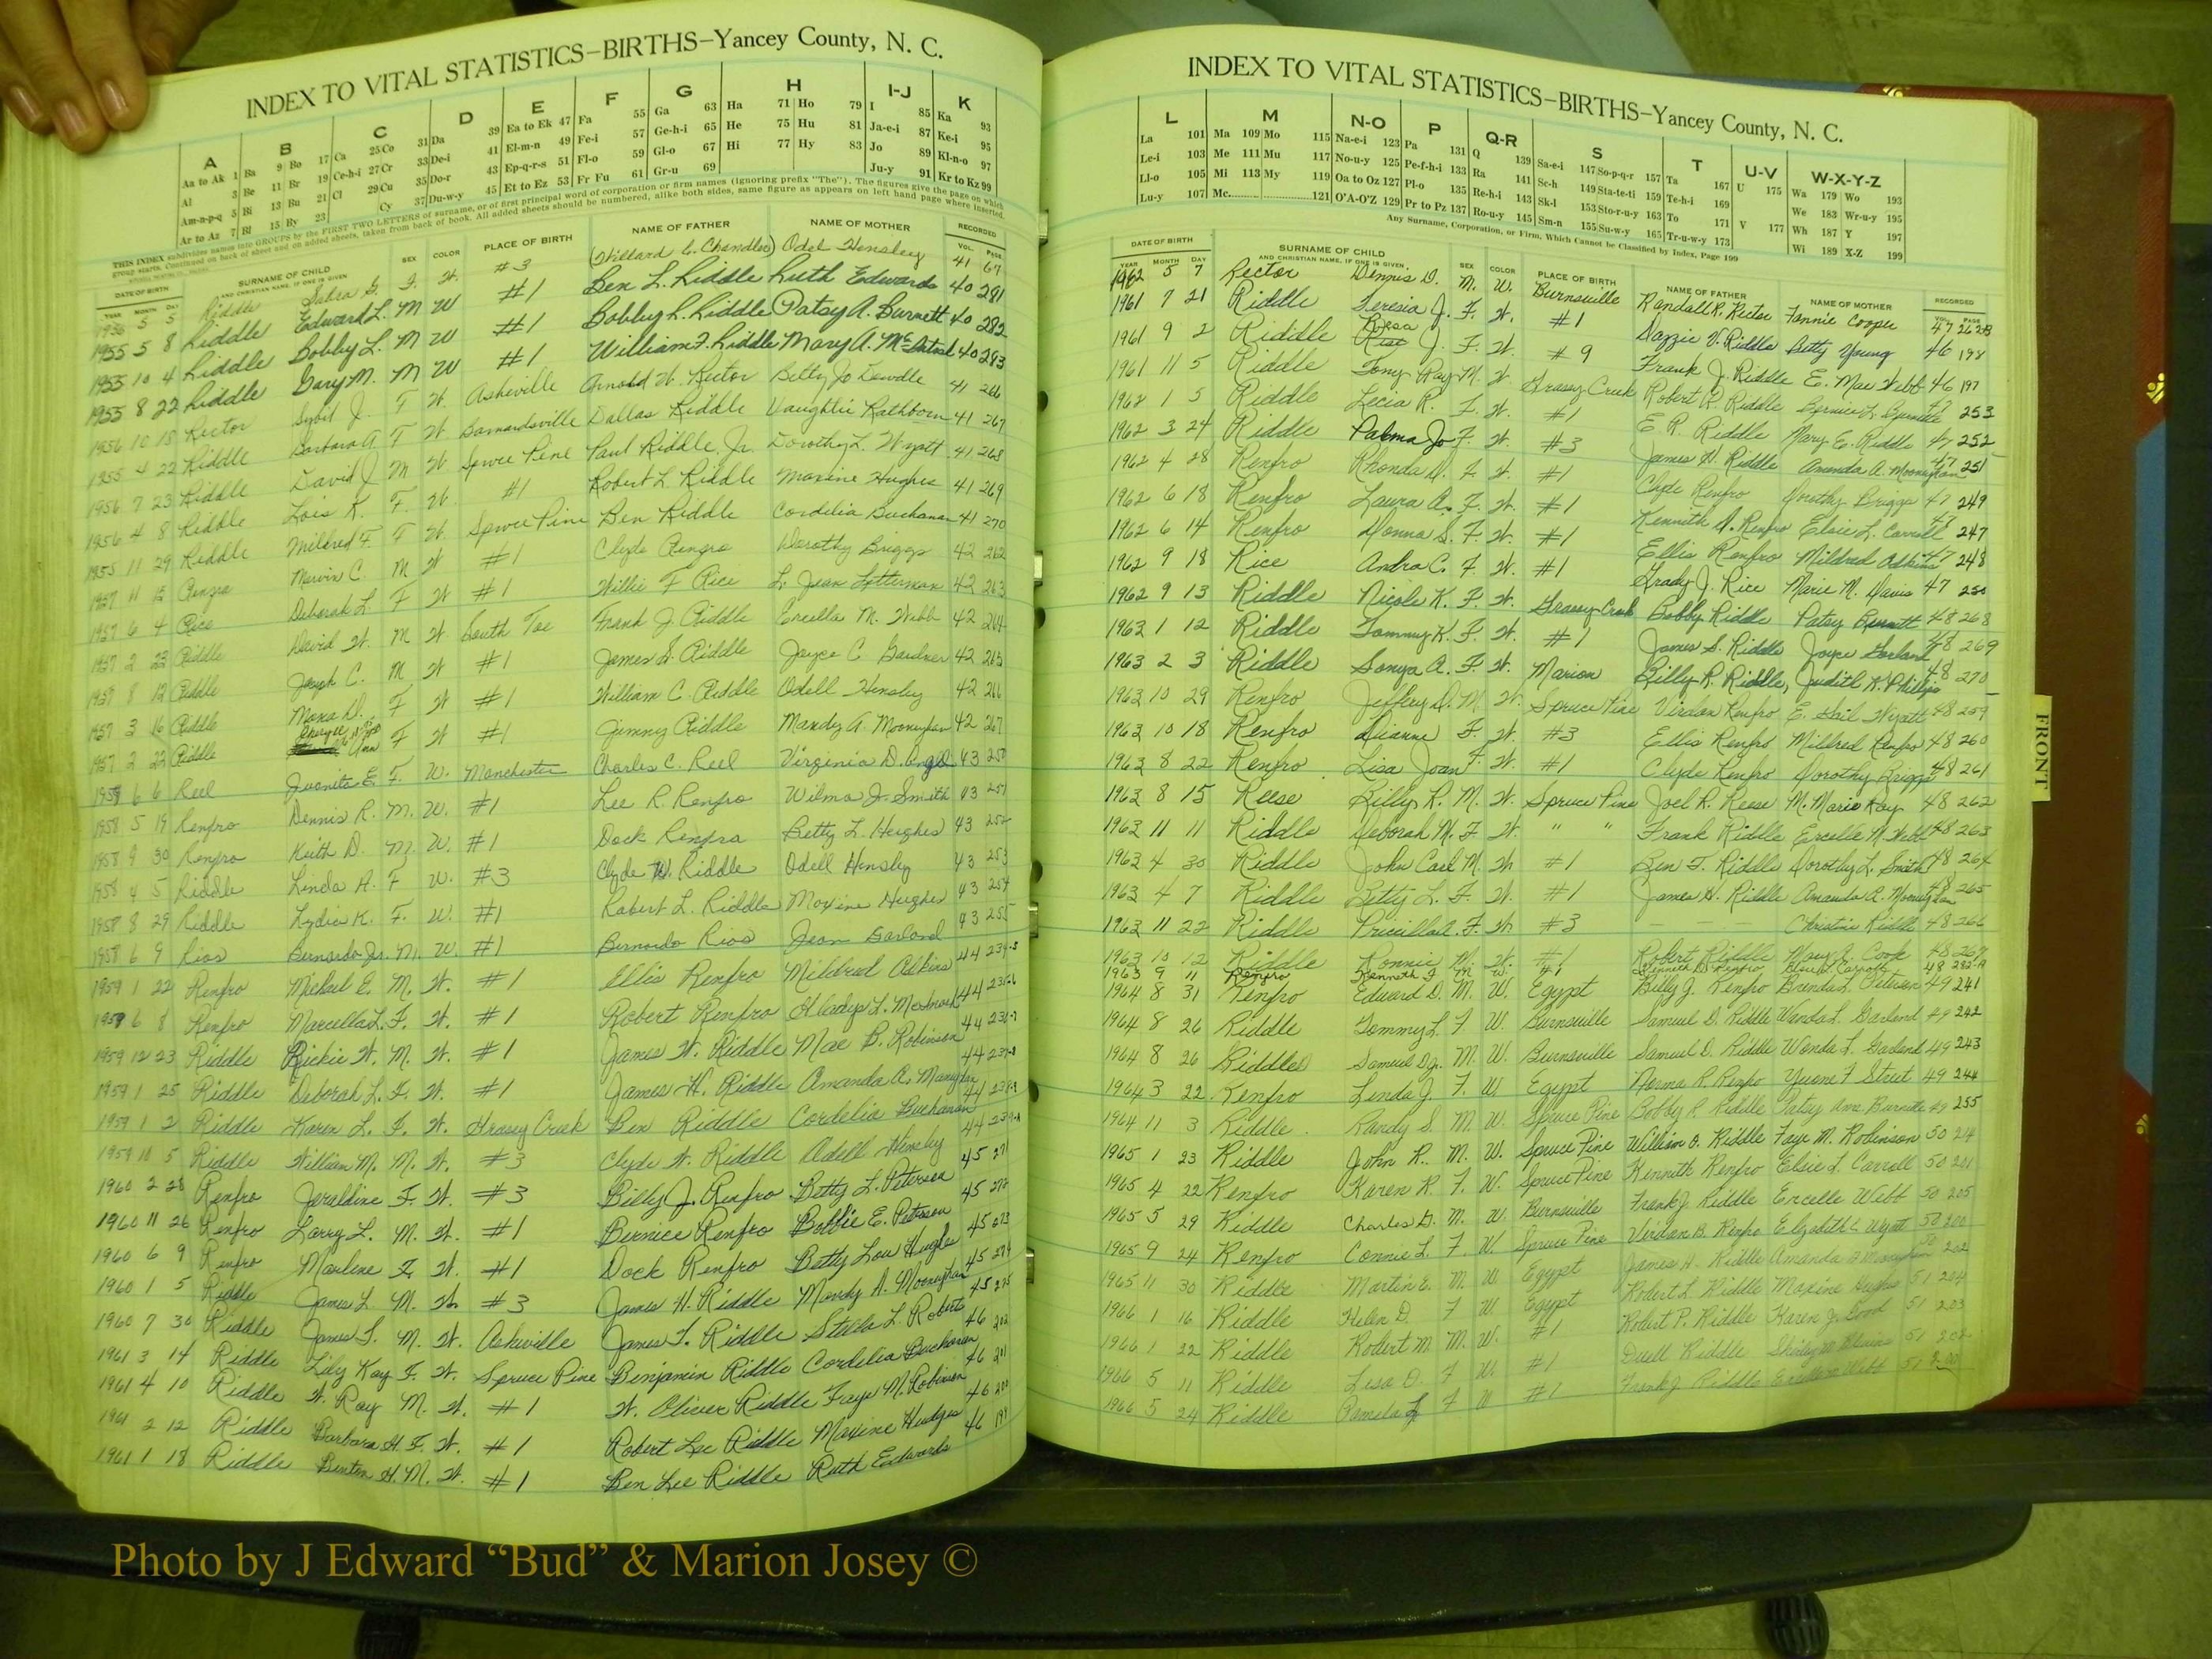 INDEX TO VITAL STATISTICS–BIRTHS–Yancey County, N. C.
A B C D E F G H I-J K
Aa to Ak 1 Ba 9 Bo 17 Ca 25 Co 31 Da 39 Ea to Ek 47 Fa 55 Ga 63 Ha 71 Ho 79 I 85 Ka 93
Al 3 Be 11 Br 19 Ce-h-i 27 Cr 33 De-i 41 El-m-n 49 Fe-i 57 Ge-h-i 65 He 75 Hu 81 Ja-e-i 87 Ke-i 95
Am-n-p-q 5 Bi 13 Bu 21 Cl 29 Cu 35 Do-r 43 Ep-q-r-s 51 Fl-o 59 Gl-o 67 Hi 77 Hy 83 Jo 89 Kl-n-o 97
Ar to Az 7 Bl 15 By 23 Cy 37 Du-w-y 45 Et to Ez 53 Fr Fu 61 Gr-u 69 Ju-y 91 Kr to Kz 99
THIS INDEX subdivides names into GROUPS by the FIRST TWO LETTERS of surname, or of first principal word of corporation or firm names (ignoring prefix "The"). The figures give the page on which
group starts. Continued on back of sheet and on added sheets, taken from back of book. All added sheets should be numbered, alike both sides, same figure as appears on left hand page where inserted.
DATE OF BIRTH SURNAME OF CHILD SEX COLOR PLACE OF BIRTH NAME OF FATHER NAME OF MOTHER RECORDED
YEAR MONTH DAY AND CHRISTIAN NAME, IF ONE IS GIVEN VOL. PAGE
1956 5 5 Riddle F. W. #3 (Willard C. Chandler) Odel Hensley 41 67
1955 5 8 Riddle Edward L. M W #1 Ben L. Riddle Ruth Edwards 40 281
1955 10 4 Riddle Bobby L. M W #1 Bobby R. Riddle Patsy A. Burnett 40 282
1955 8 22 Riddle Gary M. M W #1 William F. Riddle Mary A. 40 283
1956 10 18 Rector Sybil J. F W. Asheville Arnold W. Rector Betty Jo 41 266
1955 4 22 Riddle Barbara A. F W Barnardsville Dallas Riddle Vaughtie Rathborn 41 267
1956 7 23 Riddle David J. M W Spruce Pine Paul Riddle, Jr. Dorothy L. Wyatt 41 268
1956 4 8 Riddle Lois K. F. W. #1 Robert L. Riddle Maxine Hughes 41 269
1955 11 29 Riddle Mildred F. F W. Spruce Pine Ben Riddle Cordelia Buchanan 41 270
1957 11 15 Marvin C. M W #1 Clyde Dorothy Briggs 42 262
1957 6 4 Rice Deborah L. F W #1 Willie F Rice L. Jean Letterman 42 263
1957 2 23 Riddle David W. M W South Toe Frank J. Riddle Ercelle M. Webb 42 264
1957 8 12 Riddle Joseph C. M W #1 James S. Riddle Joyce C Gardner 42 265
1957 3 16 Riddle Mona D. F W #1 William C. Riddle Odell Hensley 42 266
1957 2 22 Riddle Ann F W #1 Jimmy Riddle Mandy A. Mooneyhan 42 267
6 6 Reel Juanita E. F. W. Manchester Charles C. Reel Virginia D. 43 250
1958 5 19 Renfro Dennis R. M. W. #1 Lee R. Renfro Wilma J. Smith 43 251
1958 9 30 Renfro Keith D. M. W. #1 Dock Renfro Betty L. Hughes 43 252
1958 4 5 Riddle Linda A. F W. #3 Clyde W. Riddle Odell Hensley 43 253
1958 8 29 Riddle Lydia K. F. W. #1 Robert L. Riddle Maxine Hughes 43 254
1958 6 9 Rios Bernardo Jr. M. W. #1 Bernardo Rios Jean Garland 43 255
1959 1 22 Renfro Michael E. M. W. #1 Ellis Renfro Mildred Adkins 44
1959 6 8 Renfro Marcella L. F. W. #1 Robert Renfro Gladys L. 44
1959 12 23 Riddle Rickie W. M. W. #1 James W. Riddle Mae B. Robinson 44
1959 1 25 Riddle Deborah L. F. W. #1 James H. Riddle Amanda A. 44
1959 1 2 Riddle Karen L. F. W. Grassy Creek Ben Riddle Cordelia Buchanan 44
1959 10 5 Riddle William M. M. W. #3 Clyde W. Riddle Odell Hensley 45 271
1960 2 28 Renfro Jeraldine F. W. #3 Billy J. Renfro Betty L. Peterson 45 272
1960 11 26 Renfro Larry L. M. W. #1 Bernice Renfro Bobbie E. Peterson 45 273
1960 6 9 Renfro Marlene F. W. #1 Dock Renfro Betty Lou Hughes 45 274
1960 1 5 Riddle James L. M. W. #3 James H. Riddle Mandy A. Mooneyhan 45 275
1960 7 30 Riddle James T. M. W. Asheville James T. Riddle Stella L. Roberts 46 202
1961 3 14 Riddle Lily Kay F. W. Spruce Pine Benjamin Riddle Cordelia Buchanan 46 201
1961 4 10 Riddle W. Ray M. W. #1 W. Oliver Riddle Faye M. Robinson 46 200
1961 2 12 Riddle Barbara H. F. W. #1 Robert Lee Riddle Maxine Hudges 46 199
1961 1 18 Riddle Benton H. M. W. #1 Ben Lee Riddle Ruth Edwards
INDEX TO VITAL STATISTICS–BIRTHS–Yancey County, N. C.
L M N-O P Q-R S T U-V W-X-Y-Z
La 101 Ma 109 Mo 115 Na-e-i 123 Pa 131 Q 139 Sa-e-i 147 So-p-q-r 157 Ta 167 U 175 Wa 179 Wo 193
Le-i 103 Me 111 Mu 117 No-u-y 125 Pe-f-h-i 133 Ra 141 Sc-h 149 Sta-te-ti 159 Te-h-i 169 We 183 Wr-u-y 195
Ll-o 105 Mi 113 My 119 Oa to Oz 127 Pl-o 135 Re-h-i 143 Sk-l 153 Sto-r-u-y 163 To 171 V 177 Wh 187 Y 197
Lu-y 107 Mc 121 O'A-O'Z 129 Pr to Pz 137 Ro-u-y 145 Sm-n 155 Su-w-y 165 Tr-u-w-y 173 Wi 189 X-Z 199
Any Surname, Corporation, or Firm, Which Cannot be Classified by Index, Page 199
DATE OF BIRTH SURNAME OF CHILD SEX COLOR PLACE OF BIRTH NAME OF FATHER NAME OF MOTHER RECORDED
YEAR MONTH DAY AND CHRISTIAN NAME, IF ONE IS GIVEN VOL. PAGE
1962 5 7 Rector Dennis D. M. W. Burnsville Randall R. Rector Fannie Cooper 47
1961 7 21 Riddle Teresia J. F. W. #1 Dazzie V. Riddle Betty Young 46 198
1961 9 2 Riddle J. F. W. #9 Frank J. Riddle E. Mae Webb 46 197
1961 11 5 Riddle Tony Ray M. W Grassy Creek Robert P. Riddle Bernice L. 253
1962 1 5 Riddle Lecia R. F. W. #1 E. R. Riddle Mary E. Riddle 47 252
1962 3 24 Riddle Palma Jo F. W. #3 James H. Riddle Amanda A. Mooneyhan 47 251
1962 4 28 Renfro Rhonda D. F. W. #1 Clyde Renfro Dorothy Briggs 47 249
1962 6 18 Renfro Laura A. F. W. #1 Kenneth D. Renfro Elsie L. Carroll 247
1962 6 14 Renfro Donna S. F. W. #1 Ellis Renfro Mildred Adkins 47 248
1962 9 18 Rice Andra C. F. W. #1 Grady J. Rice Marie M. Davis 47 250
1962 9 13 Riddle Nicole K. F. W. Grassy Creek Bobby Riddle Patsy Burnett 48 268
1963 1 12 Riddle Tommy K. F. W. #1 James S. Riddle Joyce Garland 48 269
1963 2 3 Riddle Sonya A. F. W. Marion Billy R. Riddle, Judith K. Phillips 48 270
1963 10 29 Renfro Jeffery D. M. W. Spruce Pine Virdan Renfro E. Gail Wyatt 48 259
1963 10 18 Renfro Dianne F. W. #3 Ellis Renfro Mildred Renfro 48 260
1963 8 22 Renfro Lisa Joan F. W. #1 Clyde Renfro Dorothy Briggs 48 261
1963 8 15 Reese Billy R. M. W. Spruce Pine Joel R. Reese M. Marie Kay 48 262
1963 11 11 Riddle Deborah M. F. W. " " Frank Riddle Ercelle M. Webb 48 263
1963 4 30 Riddle John Carl M. W #1 Ben F. Riddle Dorothy L. Smith 48 264
1963 4 7 Riddle Betty L. F. W. #1 James H. Riddle Amanda A. Mooneyhan 48 265
1963 11 22 Riddle Pricilla A. F. W #3 — Christine Riddle 48 266
1963 10 12 Riddle Ronnie M. W. #1 Robert Riddle Mary J. Cook 48 267
1963 9 11 Renfro Kenneth J. M. W. #1 Kenneth D. Renfro Elsie L. Carroll 48
1964 8 31 Renfro Edward D. M. W. Egypt Billy J. Renfro Brenda L. Peterson 49 241
1964 8 26 Riddle Tommy L. F W. Burnsville Samuel D. Riddle Wanda L. Garland 49 242
1964 8 26 Riddle Samuel D. Jr. M. W. Burnsville Samuel D. Riddle Wanda L. Garland 49 243
1964 3 22 Renfro Linda J. F. W. Egypt Norma R. Renfro Yvone F Street 49 244
1964 11 3 Riddle Randy S. M. W. Spruce Pine Bobby R. Riddle Patsy Ann Burnette 49 255
1965 1 23 Riddle John R. M. W. Spruce Pine William O. Riddle Faye M. Robinson 50 214
1965 4 22 Renfro Karen R. F. W. Spruce Pine Kenneth Renfro Elsie L. Carroll 50 201
1965 5 29 Riddle Charles G. M. W. Burnsville Frank J. Riddle Ercelle Webb 50 205
1965 9 24 Renfro Connie L. F. W. Spruce Pine Virdan B. Renfro Elizabeth Wyatt 50 200
1965 11 30 Riddle Martin E. M. W. Egypt James H. Riddle Amanda 50 202
1966 1 16 Riddle Helen D. F W. Egypt Robert L. Riddle Maxine Hughes 51 204
1966 1 22 Riddle Robert M. M. W. #1 Robert P. Riddle Karen J. Good 51 203
1966 5 11 Riddle Lesa D. F W. #1 Duell Riddle 51 202
1966 5 24 Riddle Pamela F W #1 Frank J. Riddle Webb 51
FRONT
Photo by J Edward “Bud” & Marion Josey ©